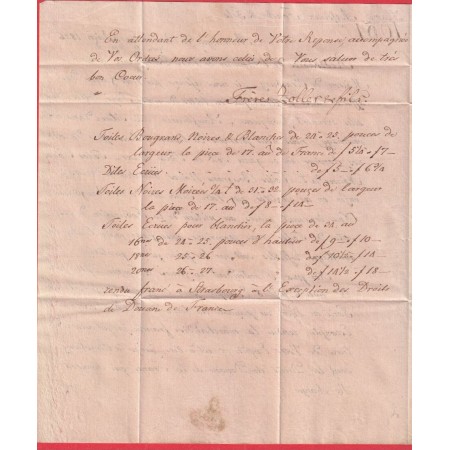 En attendant de l'honneur de Votre Reponse accompagnée
de Vos Ordres, nous avons celui de Vous saluer de très
bon Coeur
Frères Zoller & fils
Toiles Bougrans, Noires & Blanches de 24 - 25, pouces de
largeur, la pièce de 17. au de France de f 5½ - f 7 -
Dites Ecrues . . . . . . de f 5 - f 6¾
Toiles Noires Moirées ¾ l de 31 - 32 pouces de largeur
la pièce de 17. au de f 8 - f 14 -
Toiles Ecrues pour blanchir, la pièce de 34. au
16 de 24 - 25. pouces d'hauteur de f 9 - f 10 -
18 " 25 - 26 " de f 10½ - f 14 -
20 " 26 - 27. " de f 14½ - f 18 -
rendu franc à Strasbourg à l'Exception des Droits
de Douane de France